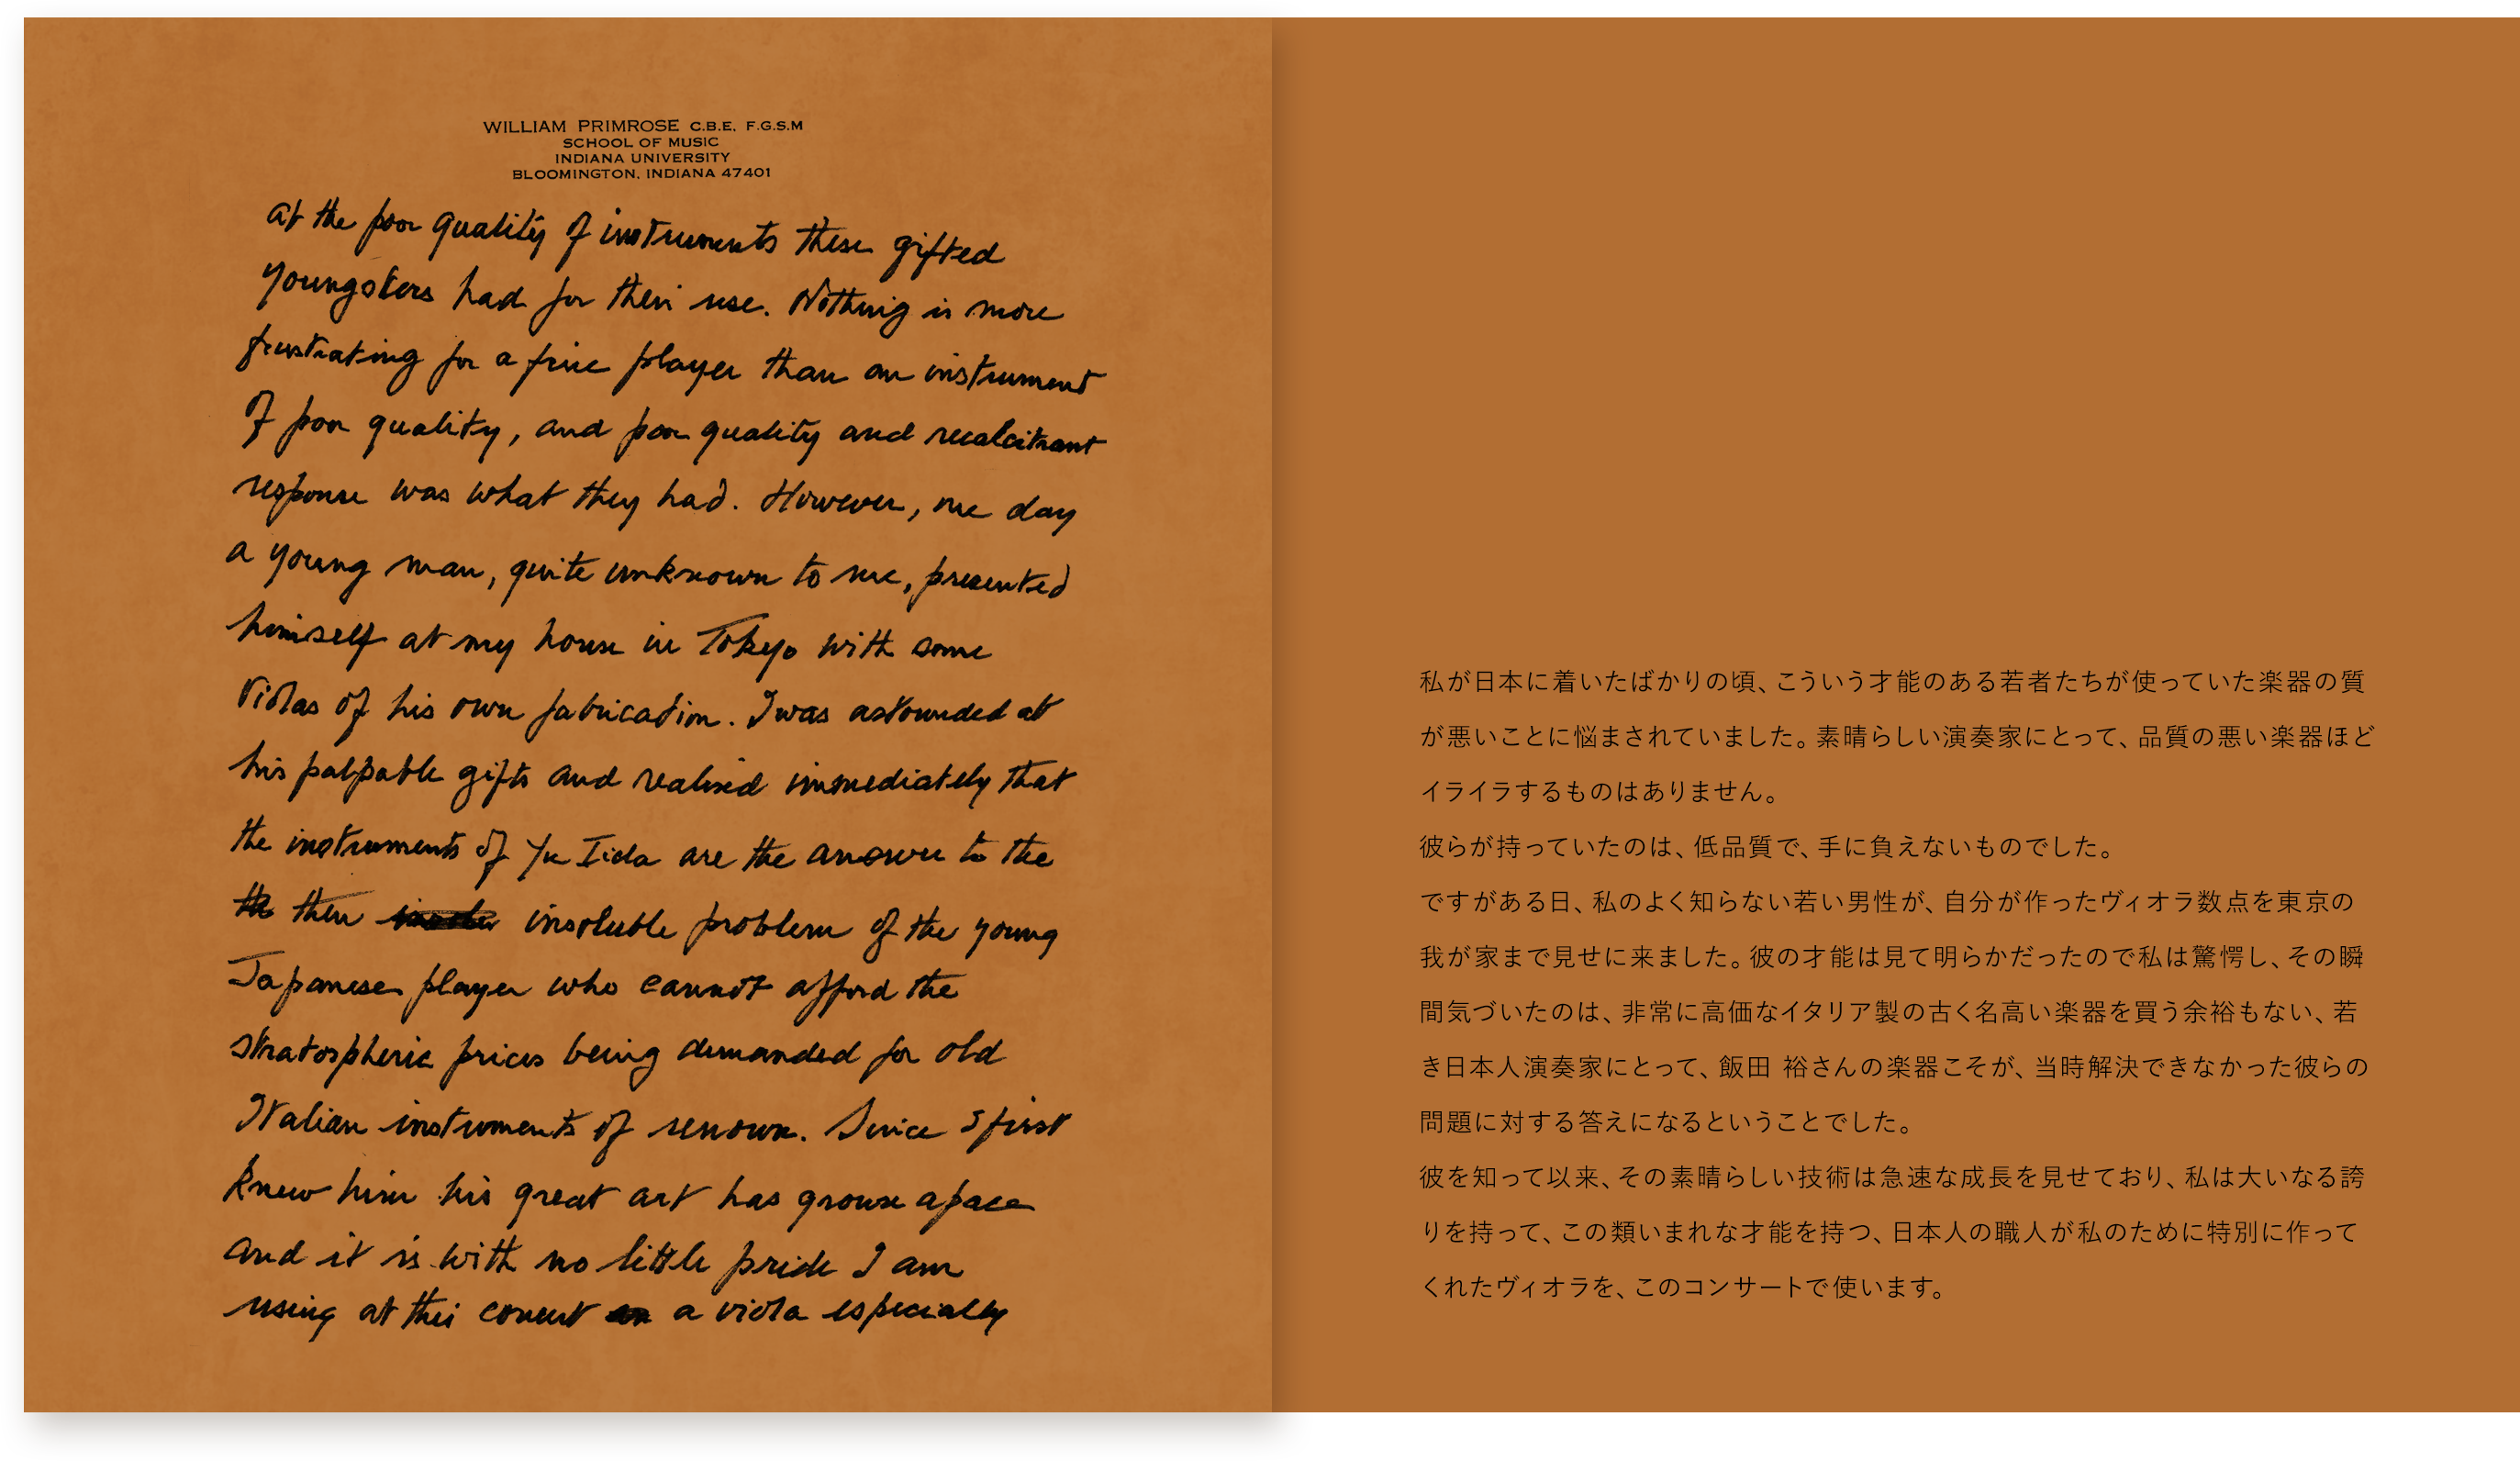 WILLIAM PRIMROSE C.B.E. F.G.S.M
SCHOOL OF MUSIC
INDIANA UNIVERSITY
BLOOMINGTON, INDIANA 47401
at the poor quality of instruments these gifted
youngsters had for their use. Nothing is more
frustrating for a fine player than an instrument
of poor quality, and poor quality and recalcitrant
response was what they had. However, one day
a young man, quite unknown to me, presented
himself at my house in Tokyo with some
violas of his own fabrication. I was astounded at
his palpable gifts and realised immediately that
the instruments of Yu Iida are the answer to the
then insoluble problem of the young
Japanese player who cannot afford the
stratospheric prices being demanded for old
Italian instruments of renown. Since I first
knew him his great art has grown apace
and it is with no little pride I am
using at this concert a viola especially
私が日本に着いたばかりの頃、こういう才能のある若者たちが使っていた楽器の質
が悪いことに悩まされていました。素晴らしい演奏家にとって、品質の悪い楽器ほど
イライラするものはありません。
彼らが持っていたのは、低品質で、手に負えないものでした。
ですがある日、私のよく知らない若い男性が、自分が作ったヴィオラ数点を東京の
我が家まで見せに来ました。彼の才能は見て明らかだったので私は驚愕し、その瞬
間気づいたのは、非常に高価なイタリア製の古く名高い楽器を買う余裕もない、若
き日本人演奏家にとって、飯田 裕さんの楽器こそが、当時解決できなかった彼らの
問題に対する答えになるということでした。
彼を知って以来、その素晴らしい技術は急速な成長を見せており、私は大いなる誇
りを持って、この類いまれな才能を持つ、日本人の職人が私のために特別に作って
くれたヴィオラを、このコンサートで使います。